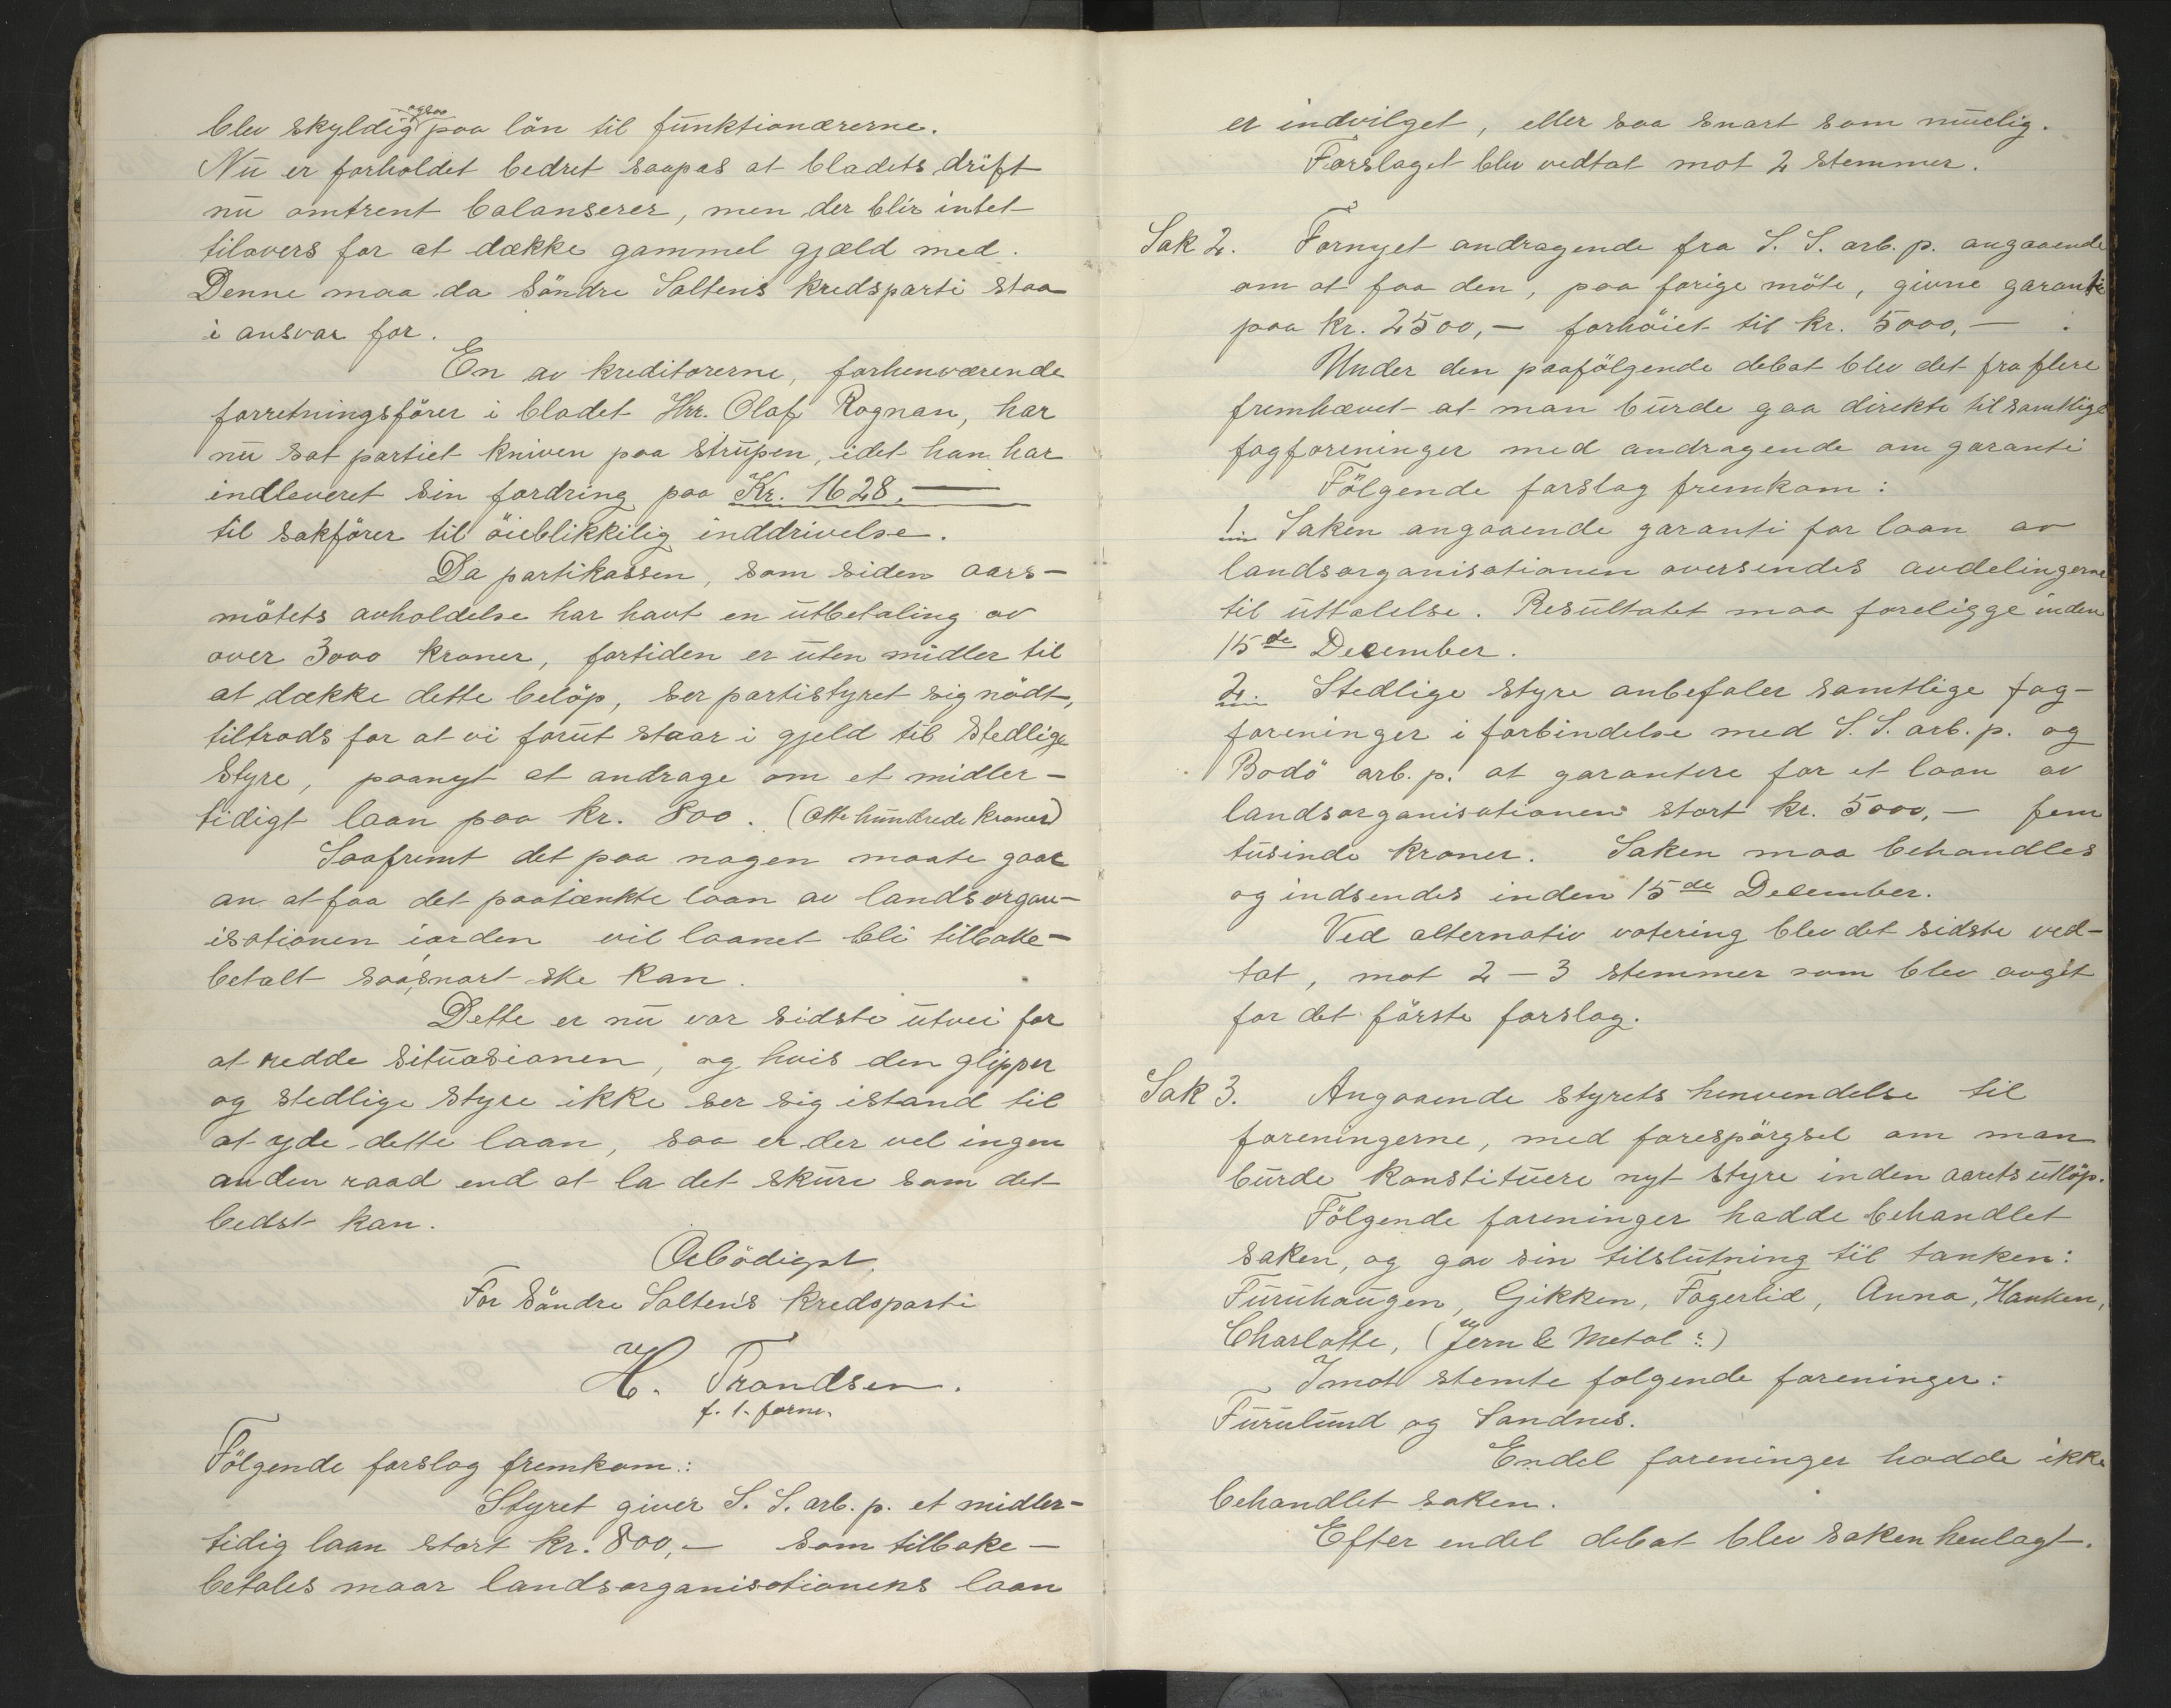 blev skyldig ogsaa paa lön til funktionærerne.
Nu er forholdet bedret saapas at bladets drift
nu omtrent balanserer, men der blir intet
tilovers for at dække gammel gjæld med.
Denne maa da Söndre Saltens kredsparti staa
i ansvar for.
En av kreditorerne, forhenværende
forretningsförer i bladet Hr. Olaf Rognan, har
nu sat partiet kniven paa strupen, idet han har
indleveret sin fordring paa Kr. 1628,—
til sakförer til öieblikkilig inddrivelse.
Da partikassen, som siden aars-
mötets avholdelse har havt en utbetaling av
over 3000 kroner, fortiden er uten midler til
at dække dette belöp, ser partistyret sig nödt,
tiltrods for at vi forut staar i gjeld til Stedlige
Styre, paanyt at andrage om et midler-
tidigt laan paa kr. 800. (Otte hundrede Kroner)
Saafremt det paa nogen maate gaar
an at faa det paatænkte laan av landsorgan-
isationen iorden vil laanet bli tilbake-
betalt saasnart ske kan.
Dette er nu vor sidste utvei for
at redde situasionen, og hvis den glipper
og stedlige Styre ikke ser sig istand til
at yde dette laan, saa er der vel ingen
anden raad end at la det skure som det
bedst kan.
Ærbödigst
For Söndre Salten's Kredsparti
H. Trondsen.
f. t. form.
Fölgende forslag fremkom:
Styret giver S. S. arb. p. et midler-
tidig laan stort kr. 800,— som tilbake-
betales naar landsorganisationens laan
er indvilget, eller saa snart som muelig.
Forslaget blev vedtat mot 2 stemmer.
Sak 2. Fornyet andragende fra S. S. arb. p. angaaende
om at faa den, paa forige möte, givne garanti
paa kr. 2500,— forhöiet til kr. 5000,— .
Under den paafölgende debat blev det fra flere
fremhævet at man burde gaa direkte til samtlige
fagforeninger med andragende om garanti
Fölgende forslag fremkom:
1. Saken angaaende garanti for laan av
landsorganisationen oversendes avdelingerne
til uttalelse. Resultatet maa foreligge inden
15de December.
2. Stedlige Styre anbefaler samtlige fag-
foreninger i forbindelse med S. S. arb. p. og
Bodö arb. p. at garantere for et laan av
landsorganisationen stort kr. 5000,— fem
tusinde kroner. Saken maa behandles
og indsendes inden 15de December.
Ved alternativ votering blev det sidste ved-
tat, mot 2 – 3 stemmer som blev avgit
for det förste forslag.
Sak 3. Angaaende styrets henvendelse til
foreningerne, med forespörgsel om man
burde konstituere nyt styre inden aarets utlöp.
Fölgende foreninger hadde behandlet
saken, og gav sin tilslutning til tanken:
Furuhaugen, Gikken, Fagerlid, Anna, Hanken,
Charlotte, (Jern & Metal?)
Imot stemte folgende foreninger:
Furulund og Sandnes.
Endel foreninger hadde ikke
behandlet saken.
Efter endel debat blev saken henlagt.